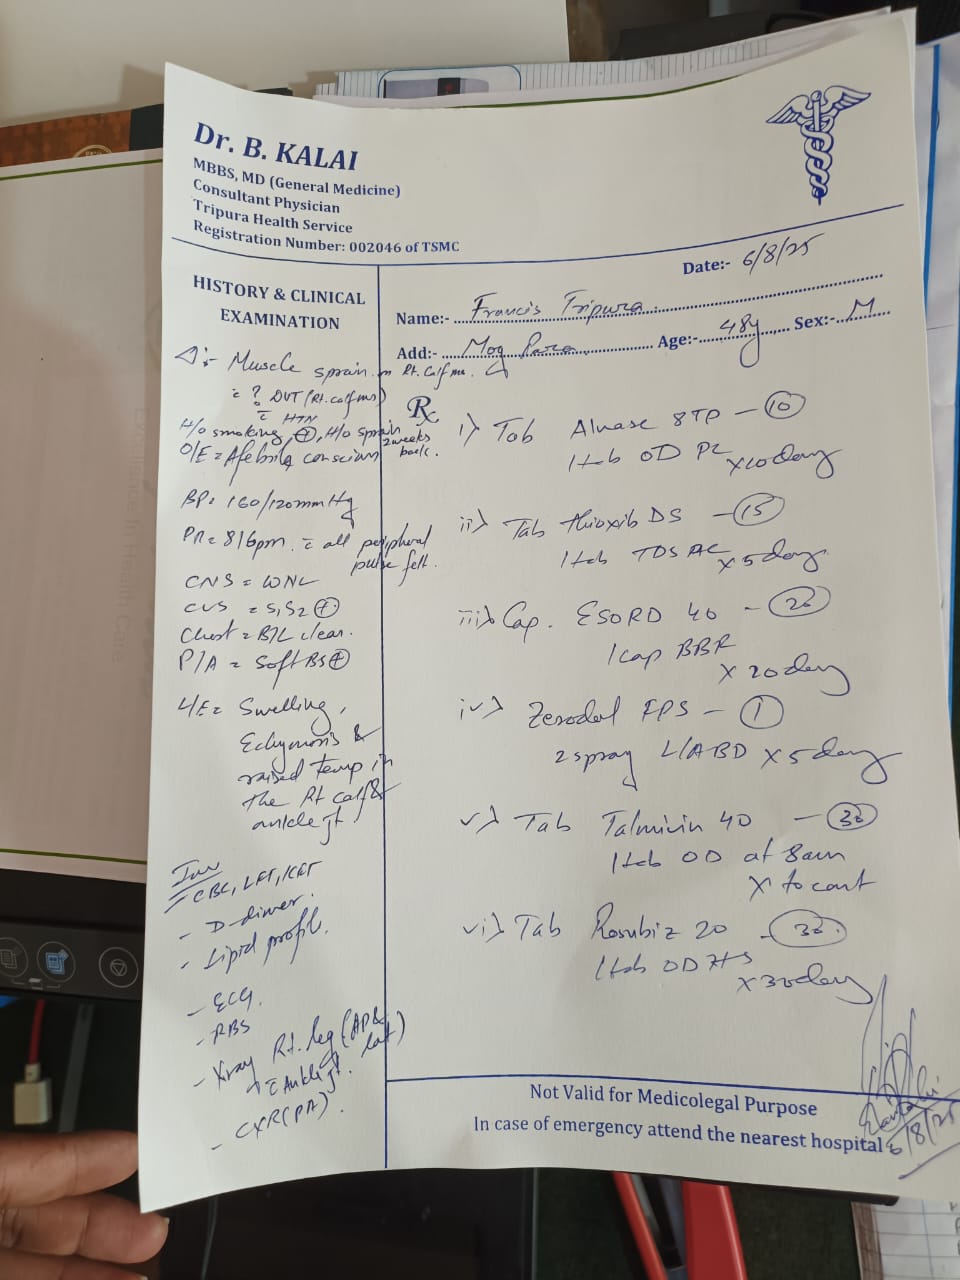 Dr. B. KALAI
MBBS, MD (General Medicine)
Consultant Physician
Tripura Health Service
Registration Number: 002046 of TSMC
Date:- 6/8/25
Name:- Francis Tripura
Add:- Mog Para Age:- 48y Sex:- M
HISTORY & CLINICAL
EXAMINATION
Δ:- Muscle sprain in Rt. Calf ms.
c̄ ? DVT (Rt. calf ms)
c̄ HTN
H/o smoking ⊕, H/o sprain 2weeks back.
O/E = Afebrile conscious
BP= 160/120mmHg
PR= 81bpm. c̄ all peripheral
pulse felt.
CNS = WNL
CVS = S1S2 ⊕
Chest = B/L clear.
P/A = Soft BS⊕
L/E= Swelling,
Echymosis &
raised temp in
the Rt calf &
ankle jt
Inv
- CBC, LFT, KFT
- D-dimer.
- Lipid profil.
- ECG.
- RBS
- Xray Rt. leg (AP & lat)
c̄ Ankle jt.
- CXR (PA).
Rx
i) Tab 8TP - 10
1tab OD PC x10day
ii) Tab thioxib DS - 15
1tab TDS AC x5day
iii) Cap. ESORD 40 - 20
1cap BBF
x 20day
iv) Zerodol - 1
2spray L/A BD x 5day
v) Tab 40 - 30
1tab OD at 8am
x to cont
vi) Tab Rosubiz 20 - 30
1tab OD HS
x30day
6/8/25
Not Valid for Medicolegal Purpose
In case of emergency attend the nearest hospital